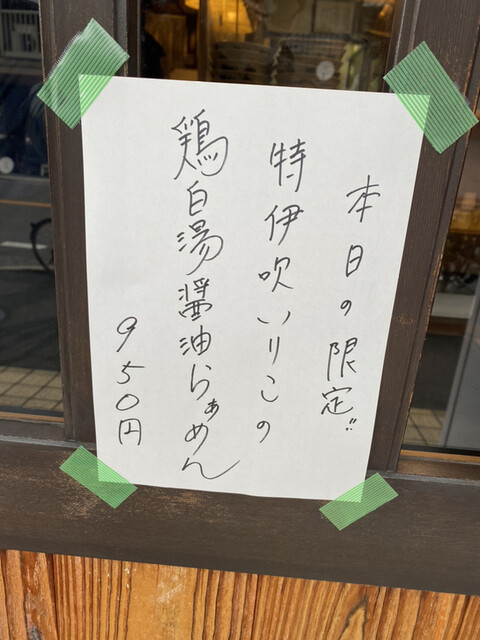 本日の限定!!
特伊吹いりこの
鶏白湯醤油らぁめん
950円